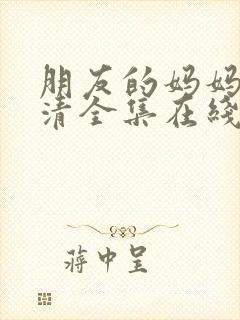 朋友的妈妈
清全集在线
蒋中呈